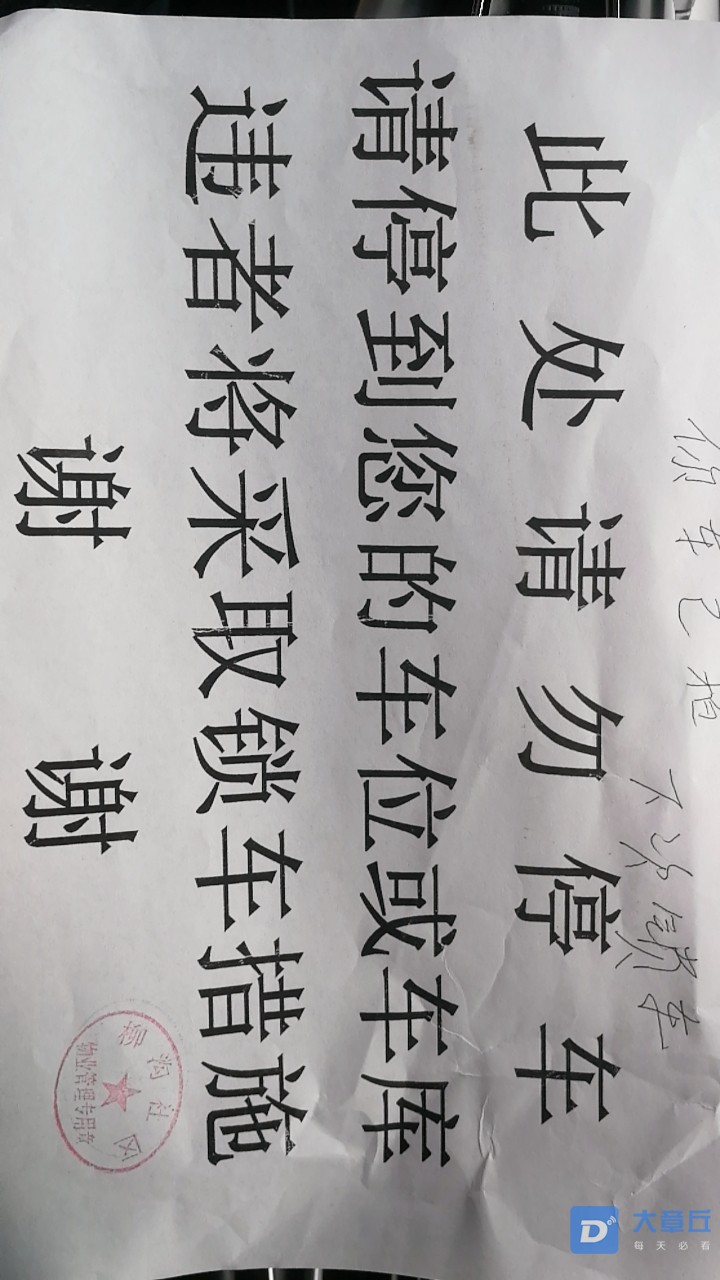 你车已拍
下次锁车
此处请勿停车
请停到您的车位或车库
违者将采取锁车措施
谢谢
柳沟社区
物业管理专用章
大章丘
每天必看